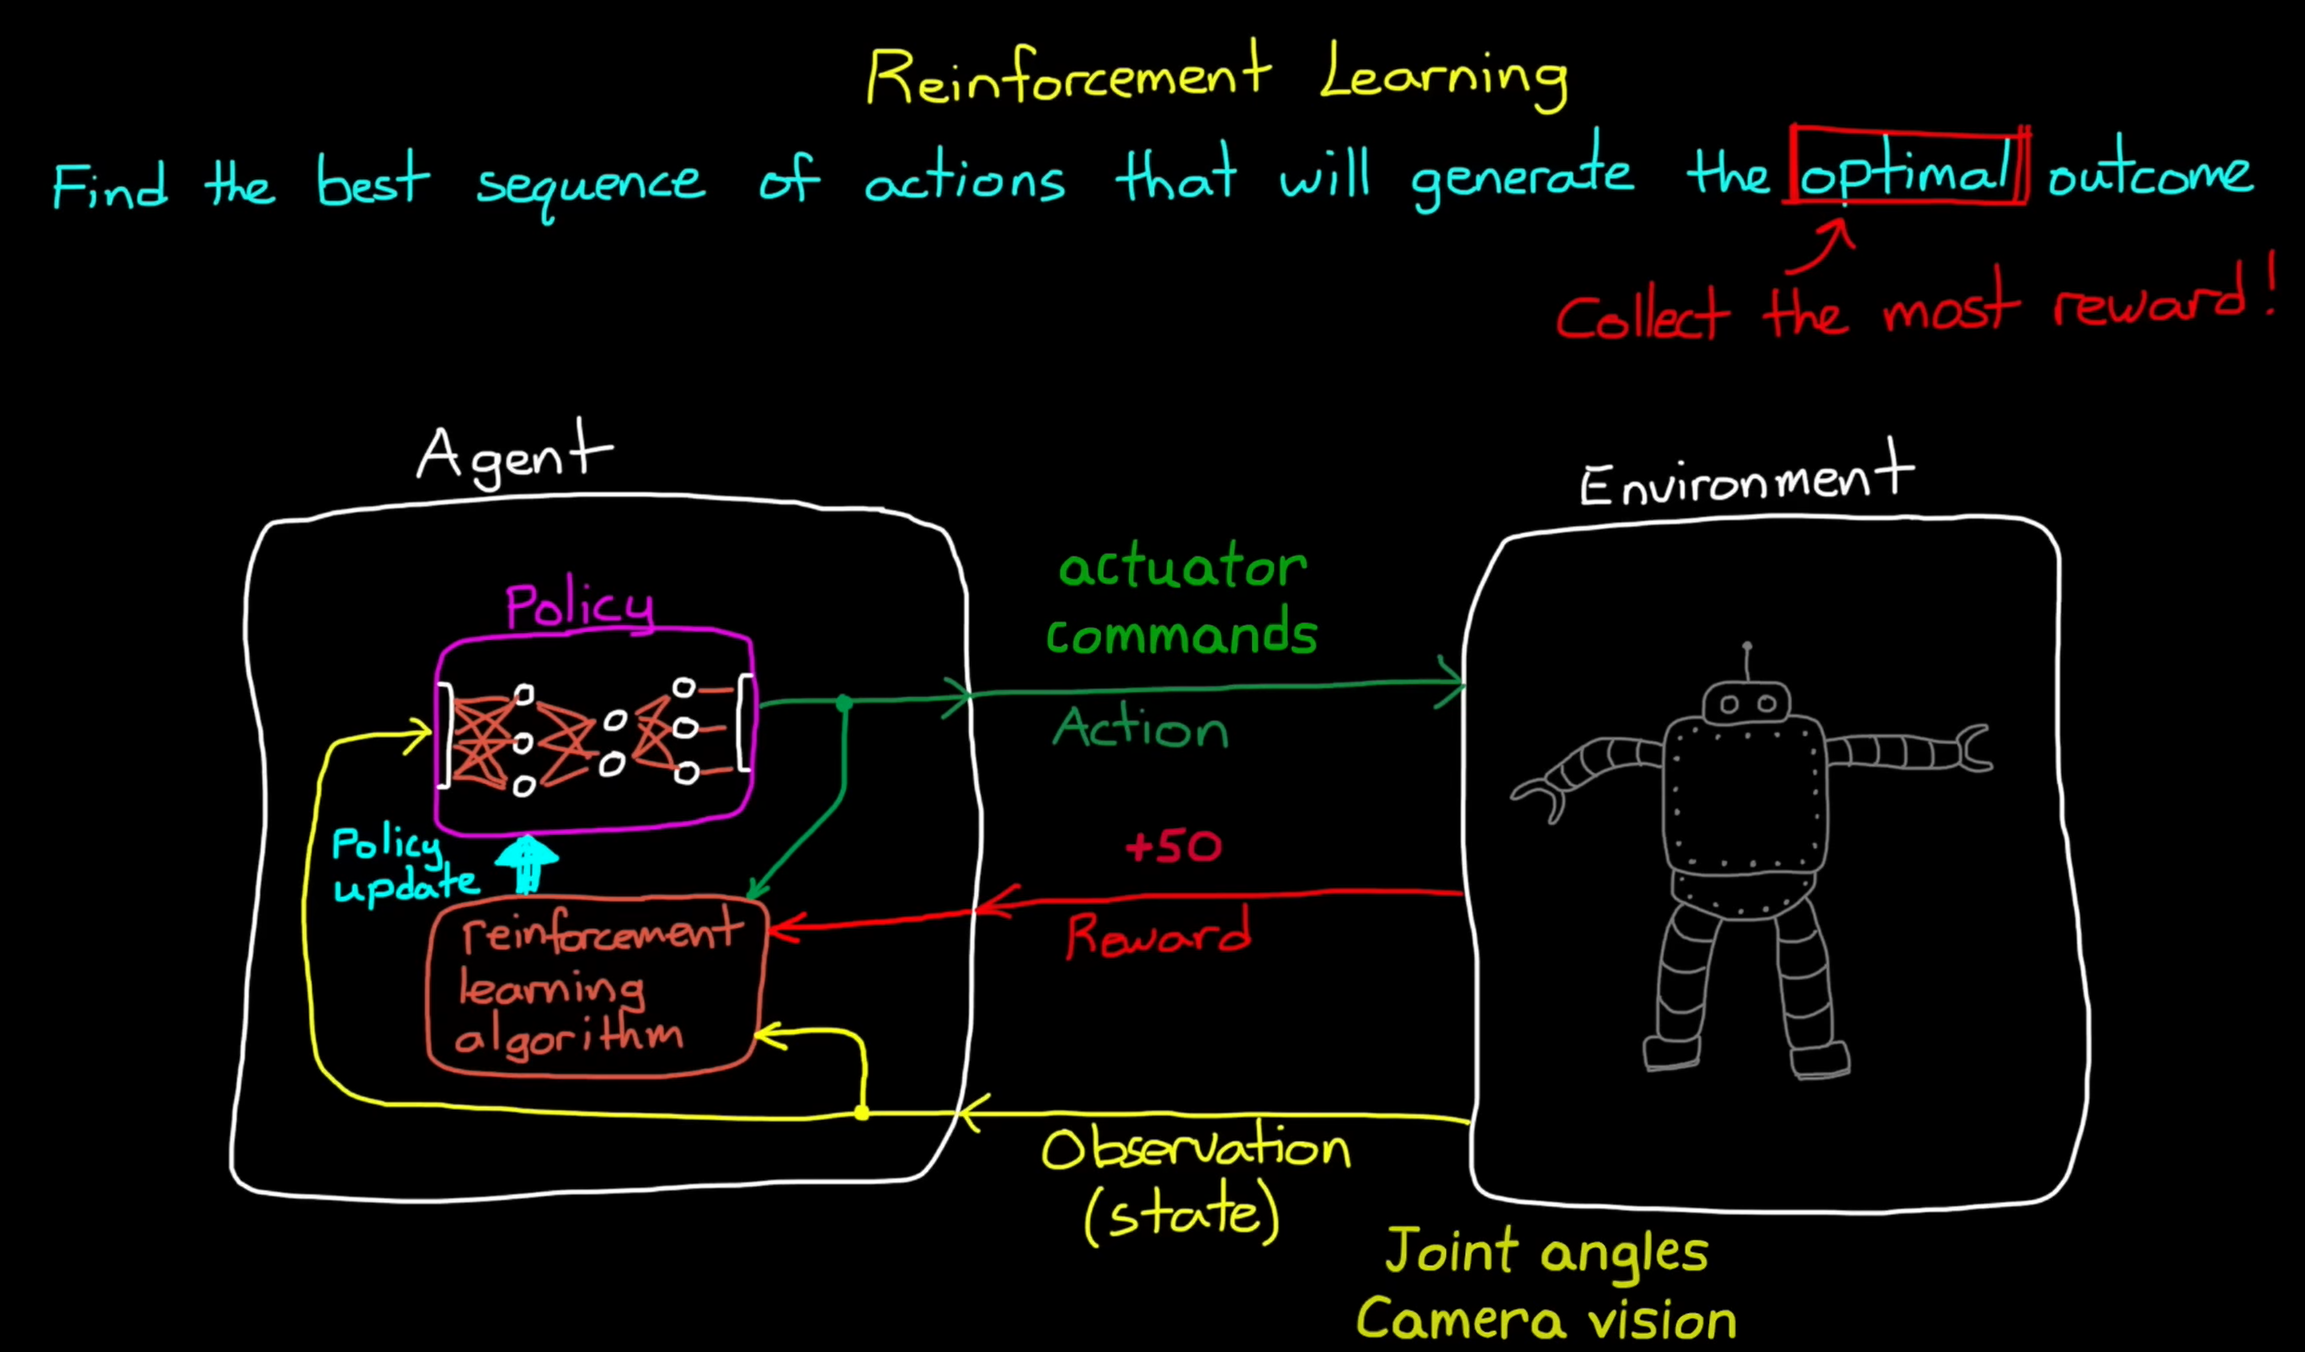 Reinforcement Learning
Find the best sequence of actions that will generate the optimal outcome
Collect the most reward!
Agent
Environment
Policy
actuator
commands
Action
Policy
update
+50
Reward
reinforcement
learning
algorithm
Observation
(state)
Joint angles
Camera vision